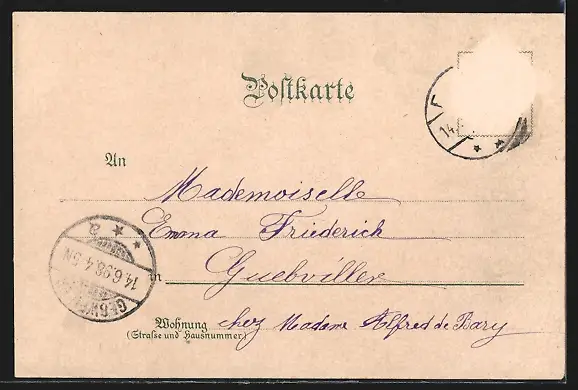 Postkarte
14
An
Mademoiselle
Emma Friederich
in Guebviller
14.6.98.4-5N
a
Wohnung chez Madame Alfred de Bary
(Straße und Hausnummer)